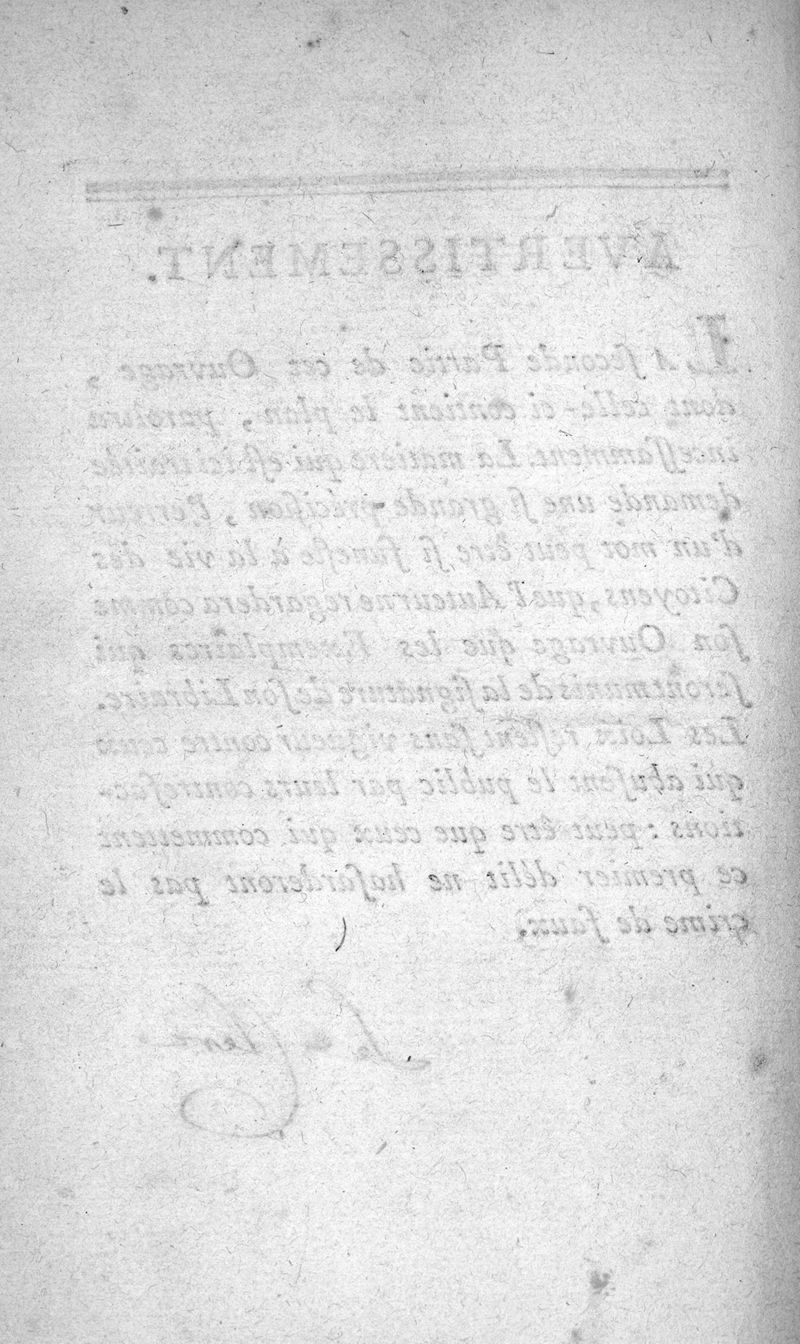 AVERTISSEMENT.
LA ſeconde Partie de cet Ouvrage,
dont celle-ci contient le plan, paroîtra
inceſſamment. La matiere qui eſt ici traitée
demande une ſi grande préciſion, l'erreur
d'un mot peut être ſi funeſte à la vie des
Citoyens, que l'Auteur ne regardera comme
ſon Ouvrage que les Exemplaires qui
ſeront munis de la ſignature de ſon Libraire.
Les Loix reſtent ſans vigueur contre ceux
qui abuſent le public par leurs contrefac-
tions : peut-être que ceux qui commettent
ce premier délit ne haſarderont pas le
crime de faux.